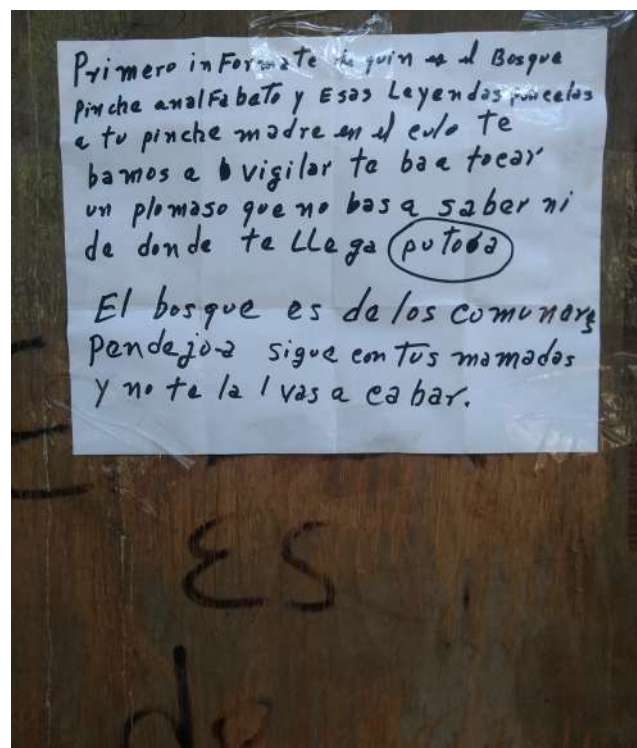 Primero inFormate de quin es el Bosque
Pinche analFabeto y Esas Leyendas poncelas
a tu pinche madre en el culo te
bamos a vigilar te baa tocar
un plomaso que no bas a saber ni
de donde te LLega putoða
El bosque es de los comunares
Pendejo-a sigue con Tus mamadas
y no te la l vas a cabar.
ES
de